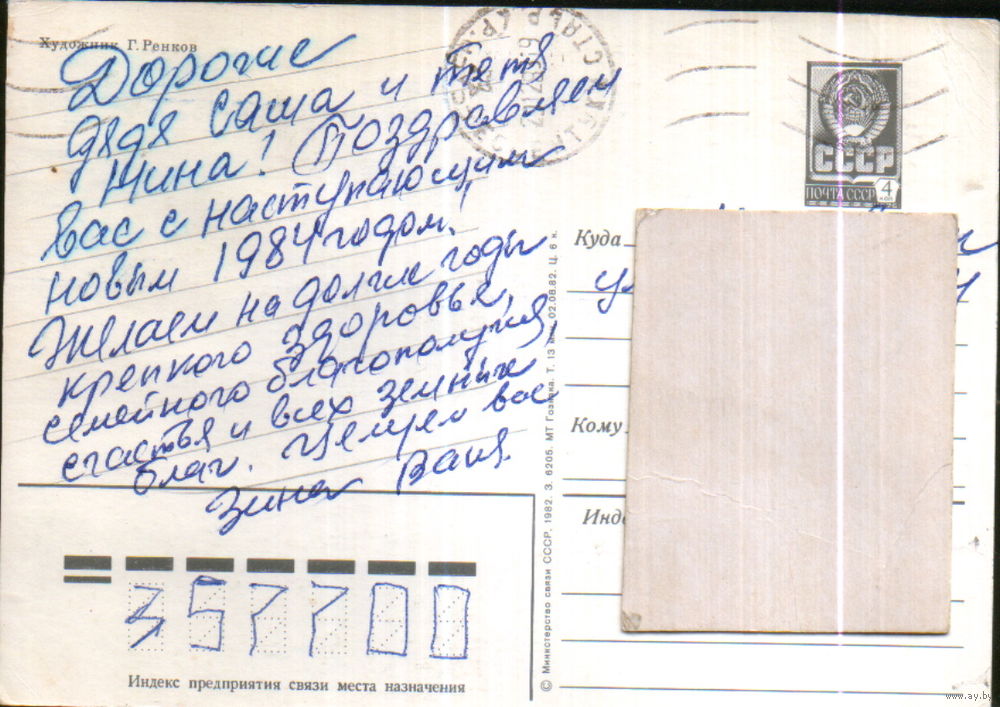 Художник Г. Ренков
Дорогие
дядя Саша и тётя
Нина! Поздравляем
вас с наступающим
новым 1984 годом!
Желаем на долгие годы
крепкого здоровья,
семейного благополучия,
счастья и всех земных
благ. Целуем вас
Зина Ваня.
СССР
ПОЧТА СССР
4
КОП
Куда
ул
Кому
Инде
357700
Индекс предприятия связи места назначения
© Министерство связи СССР. 1982. З. 6205. МТ Гознака. Т. 13 млн. 02.08.82. Ц. 6 к.
www.ay.by